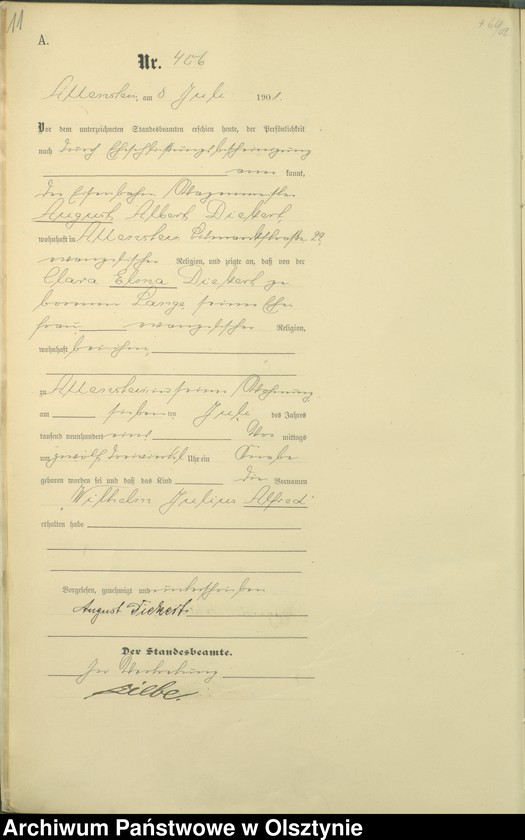 11
A.
Nr. 406
Allenstein, am 8 Juli 1901.
Vor dem unterzeichneten Standesbeamten erschien heute, der Persönlichkeit
nach durch Eheschließungsbescheinigung
kannt,
der Eisenbahn
August Albert Diekert
wohnhaft in Allenstein 29
evangelischer Religion, und zeigte an, daß von der
Clara Elma Diekert ge
borenen Lange, seiner Ehe
frau evangelischer Religion,
wohnhaft bei ihm,
zu Allenstein in seiner Wohnung
am sieben ten Juli des Jahres
tausend neunhundert eins Vor mittags
um zwölf dreiviertel Uhr ein Knabe
geboren worden sei und daß das Kind die Vornamen
Wilhelm Julius Alfred
erhalten habe
Vorgelesen, genehmigt und unterschrieben
August Diekert
Der Standesbeamte.
In Vertretung
Archiwum Państwowe w Olsztynie